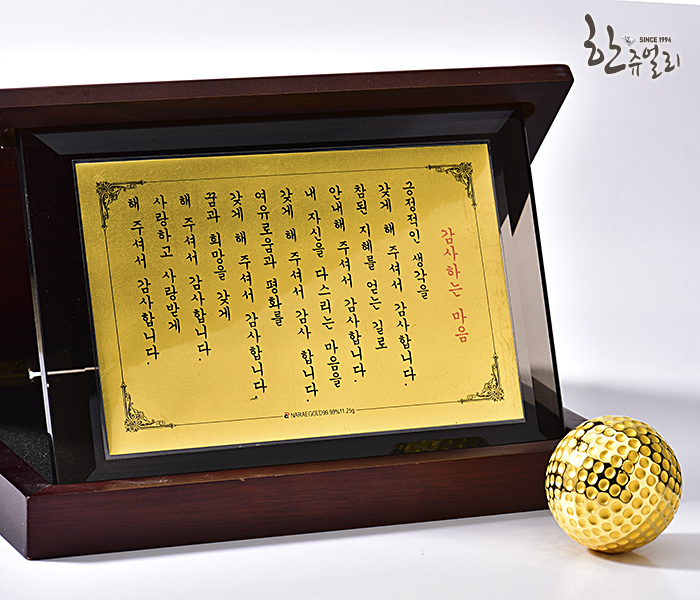 한쥬얼리
SINCE 1994
감사하는 마음
긍정적인 생각을
갖게 해 주셔서 감사합니다.
참된 지혜를 얻는 길로
안내해 주셔서 감사합니다.
내 자신을 다스리는 마음을
갖게 해 주셔서 감사 합니다.
여유로움과 평화를
갖게 해 주셔서 감사합니다.
꿈과 희망을 갖게
해 주셔서 감사합니다.
사랑하고 사랑받게
해 주셔서 감사합니다.
NARAEGOLD99.99%11.25g